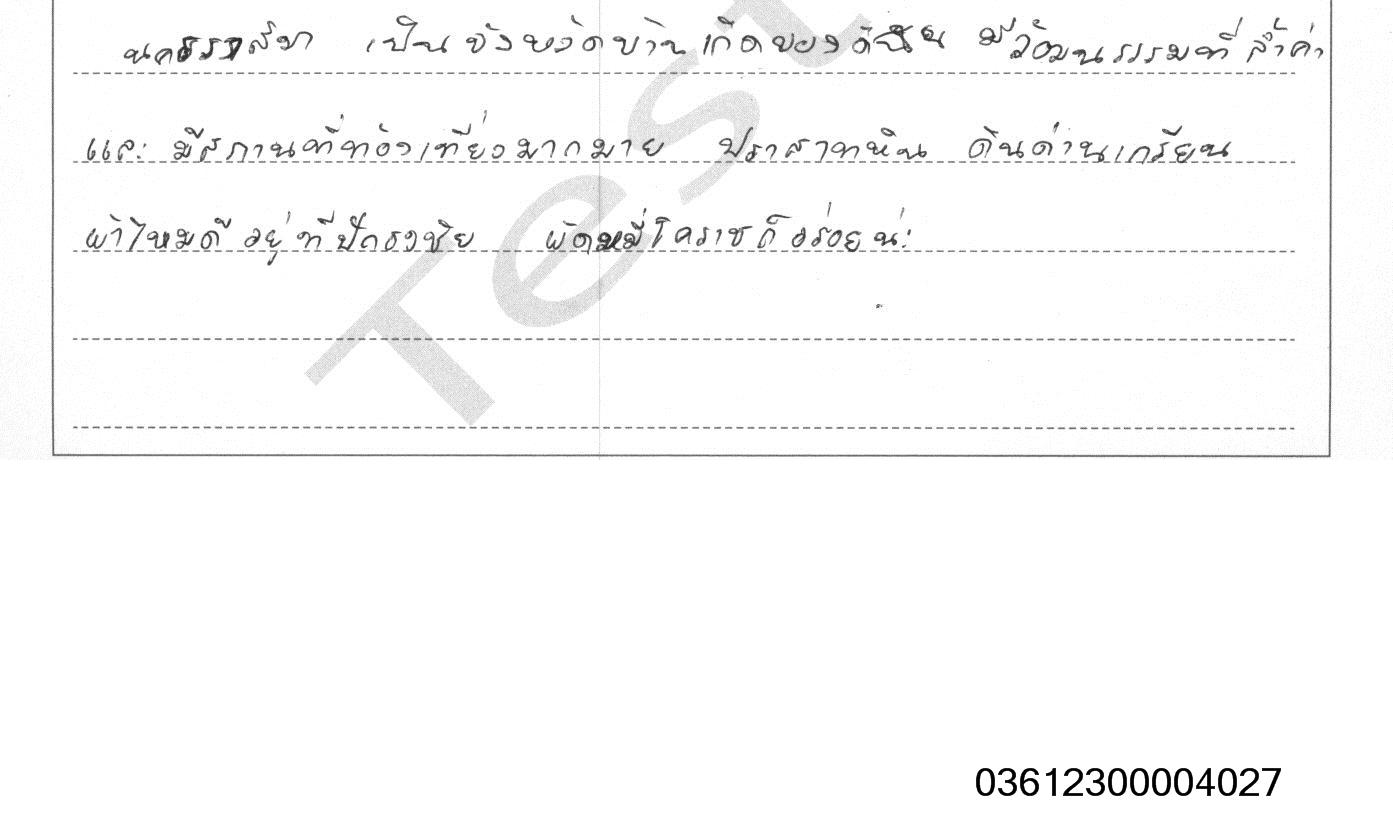 นครราชสีมา เป็นจังหวัดบ้านเกิดของดิฉัน มีวัฒนธรรมที่ล้ำค่า
และมีสถานที่ท่องเที่ยวมากมาย ปราสาทหิน ดินด่านเกวียน
ผ้าไหมดี อยู่ที่ปักธงชัย ผัดหมี่โคราชก็อร่อยน่ะ
Test
03612300004027